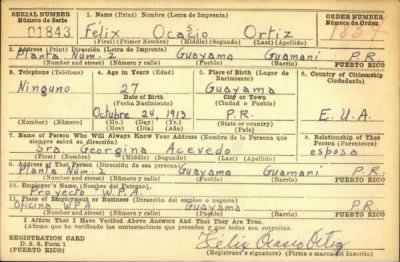 SERIAL NUMBER 1. Name (Print) Nombre (Letra de Imprenta) ORDER NUMBER
Número de Serie Número de Orden
01843 Félix Ocasio Ortiz 1834
(First) (Primer Nombre) (Middle) (Segundo) (Last) (Apellido)
2. Address (Print) Dirección (Letra de Imprenta)
Planta Num. 2 Guayama Guamaní P.R.
(Number and street) (Número y calle) (Town) (Ciudad) (Barrio) PUERTO RICO
3. Telephone (Teléfono) 4. Age in Years (Edad) 5. Place of Birth (Lugar de Nacimiento) 6. Country of Citizenship (Ciudadanía)
Ninguno 27 Guayama
Date of Birth City or Town
(Fecha Nacimiento) (Ciudad o Pueblo)
Octubre 24, 1913 P.R. E.U.A.
(Number) (Número) (Mo.) (Day) (Yr.) (State or country)
(Mes) (Día) (Año) (Estado o país)
7. Name of Person Who Will Always Know Your Address (Nombre de la Persona que siempre sabrá su dirección) 8. Relationship of That Person (Parentesco)
Sra. Georgina Acevedo esposa
(First) (Nombre) (Middle) (Segundo) (Last) (Apellido)
9. Address of That Person (Dirección de esa persona)
Planta Num. 2 Guayama Guamaní P.R.
(Number and street) (Número y calle) (Town) (Ciudad) (Barrio) PUERTO RICO
10. Employer's Name (Nombre del Patrono)
Proyecto W.P.A.
11. Place of Employment or Business (Dirección del empleo o negocio)
Oficina WPA Guayama P.R.
(Number and street) (Número y calle) (Town) (Ciudad) PUERTO RICO
I Affirm That I Have Verified Above Answers And That They Are True.
(Afirmo que he verificado las contestaciones que preceden y que todas son correctas.)
REGISTRATION CARD
D. S. S. Form 1
(PUERTO RICO)
Félix Ocasio Ortiz
(Registrant's signature) (Firma o marca del Inscrito)